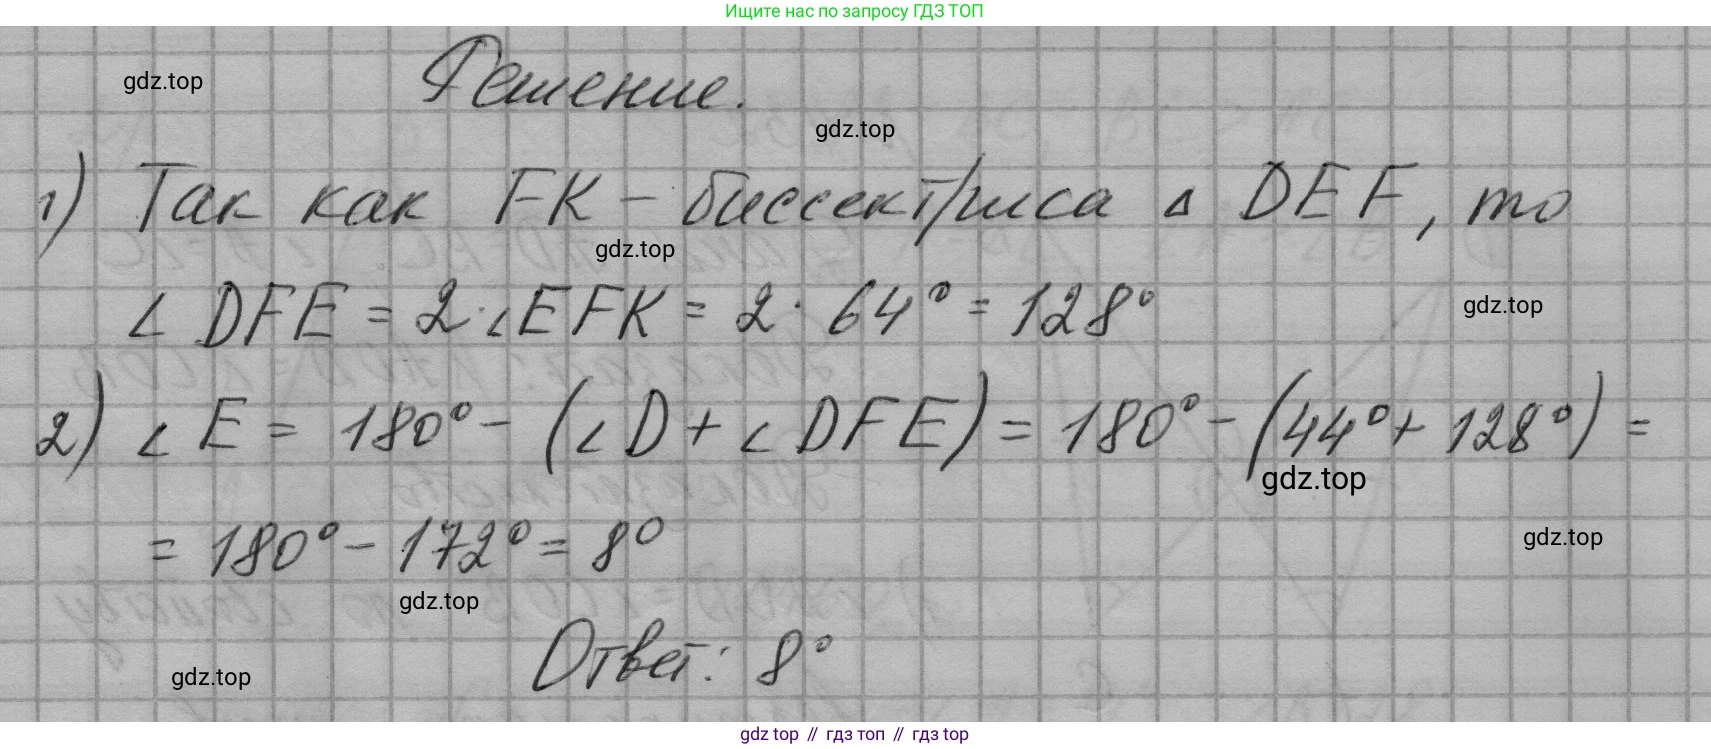 Ищите нас по запросу ГДЗ ТОП
Решение.
gdz.top
gdz.top
1) Так как FK - биссектриса Δ DEF, то
gdz.top
∠ DFE = 2·∠EFK = 2 · 64° = 128°
gdz.top
2) ∠ E = 180° - (∠D + ∠DFE) = 180° - (44° + 128°) =
gdz.top
= 180° - 172° = 8°
gdz.top
gdz.top
Ответ: 8°
gdz.top
gdz top // гдз топ // гдз top